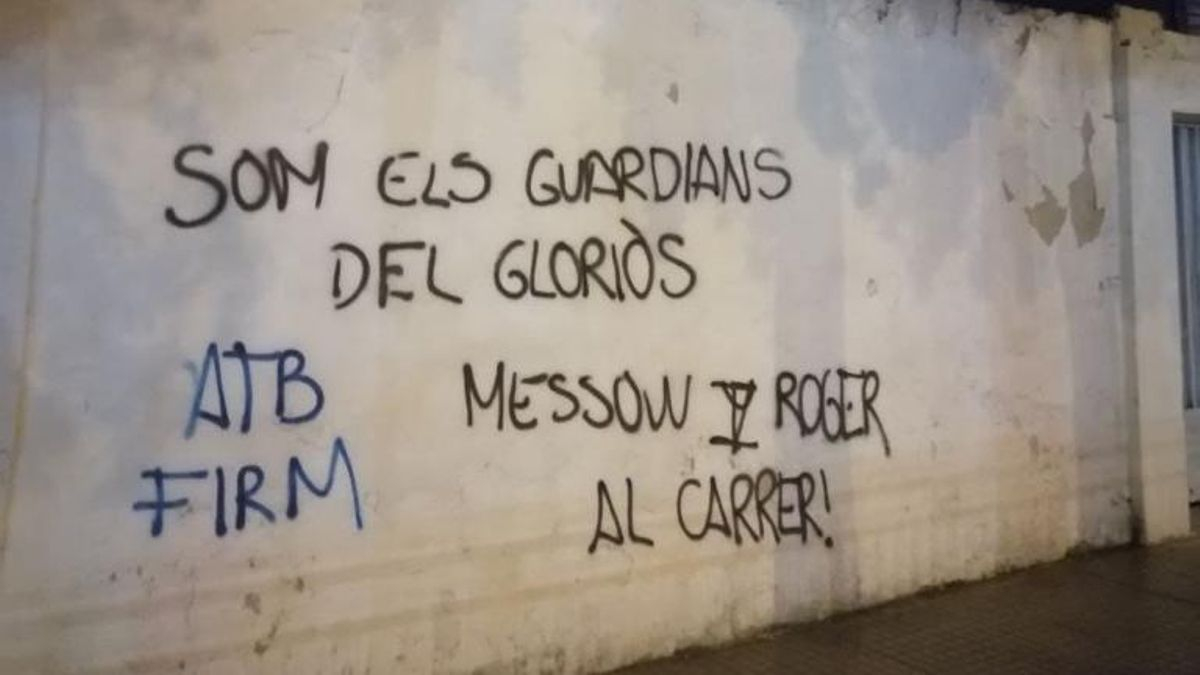 SOM ELS GUARDIANS
DEL GLORIÒS
ATB
FIRM
MESSOW ROGER
AL CARRER!